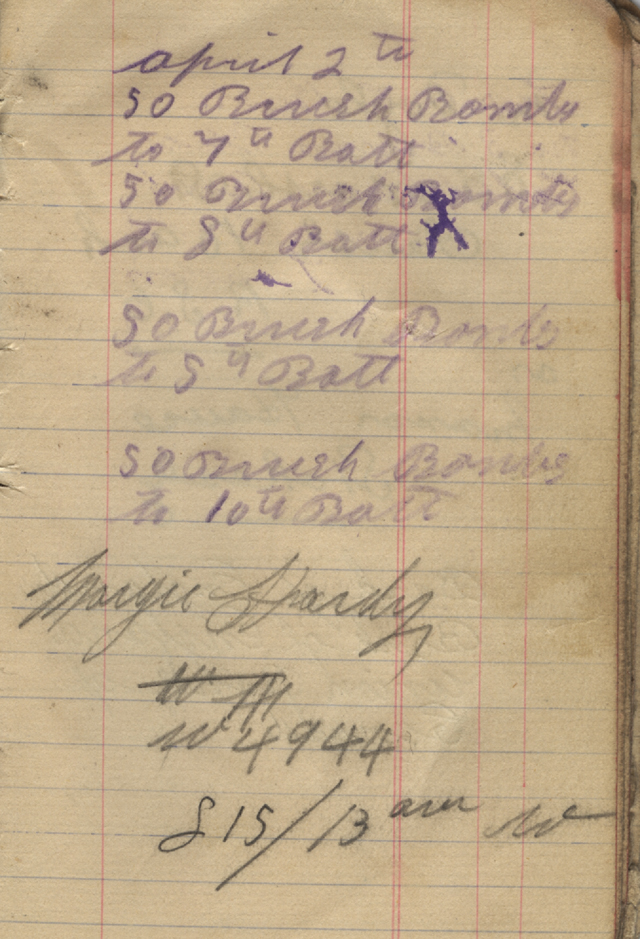 april 2th
50 Brush Bombs
to 7th Batt
50 Brush Bombs
to 8th Batt
50 Brush Bombs
to 9th Batt
50 Brush Bombs
to 10th Batt
Margie Hardy
W 4944
815/13